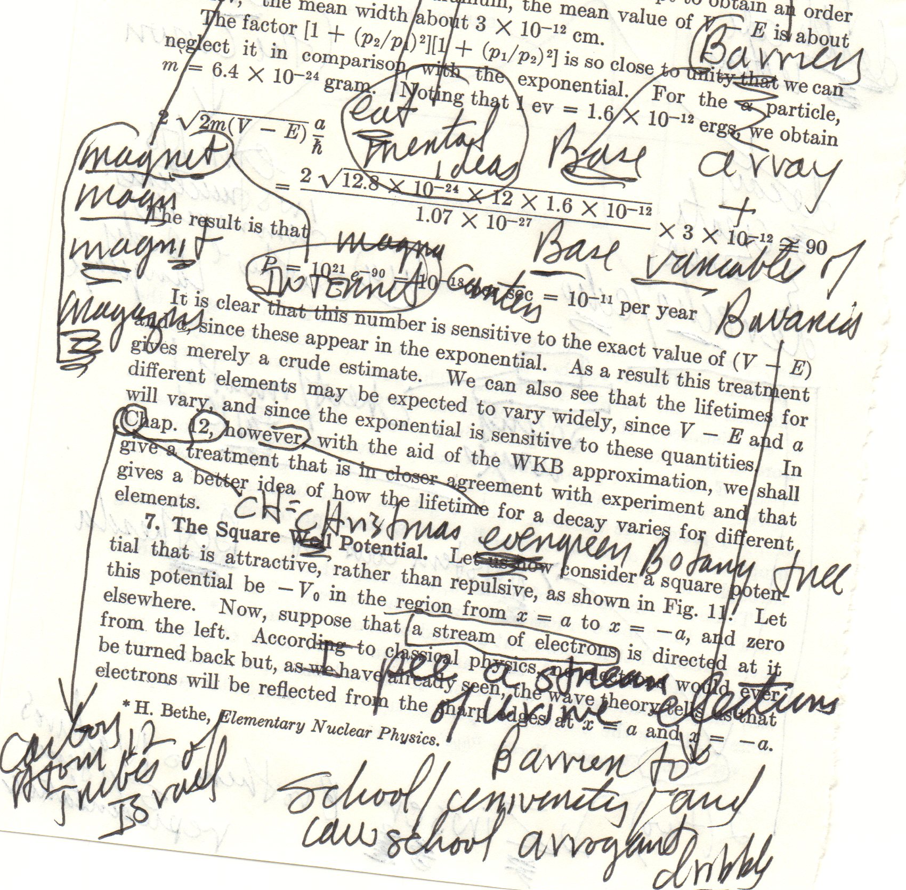 the mean width about 3 × 10⁻¹² cm.
to obtain an order
the mean value of V − E is about
The factor [1 + (p₂/p₁)²][1 + (p₁/p₂)²] is so close to unity that we can
neglect it in comparison with the exponential. For the a particle,
m = 6.4 × 10⁻²⁴ gram. Noting that 1 ev = 1.6 × 10⁻¹² ergs, we obtain
Barriers
array
+
variable of
Bavarias
eat
mental
ideas
Base
Base
2 √2m(V − E) a/ħ
= 2 √12.8 × 10⁻²⁴ × 12 × 1.6 × 10⁻¹² / 1.07 × 10⁻²⁷ × 3 × 10⁻¹² ≅ 90
magnet
magn
magnit
magazines
The result is that
magna
P = 10²¹ e⁻⁹⁰ = 10⁻¹⁸ per sec = 10⁻¹¹ per year
INTERNIT
It is clear that this number is sensitive to the exact value of (V − E)
and a, since these appear in the exponential. As a result this treatment
gives merely a crude estimate. We can also see that the lifetimes for
different elements may be expected to vary widely, since V − E and a
will vary, and since the exponential is sensitive to these quantities. In
Chap. 12, however, with the aid of the WKB approximation, we shall
give a treatment that is in closer agreement with experiment and that
gives a better idea of how the lifetime for a decay varies for different
elements.
CH = CHristmas evergreen Botany tree
7. The Square Well Potential. Let us now consider a square poten-
tial that is attractive, rather than repulsive, as shown in Fig. 11. Let
this potential be −V₀ in the region from x = a to x = −a, and zero
elsewhere. Now, suppose that a stream of electrons is directed at it
from the left. According to classical physics, no electron would ever
be turned back but, as we have already seen, the wave theory tells us that
electrons will be reflected from the sharp edges at x = a and x = −a.
I pee a stream
of urine elections
* H. Bethe, Elementary Nuclear Physics.
Carbon
Atom 12
Tribes of
Israel
Barrier to
School/university/and
law school arrogant
dribble